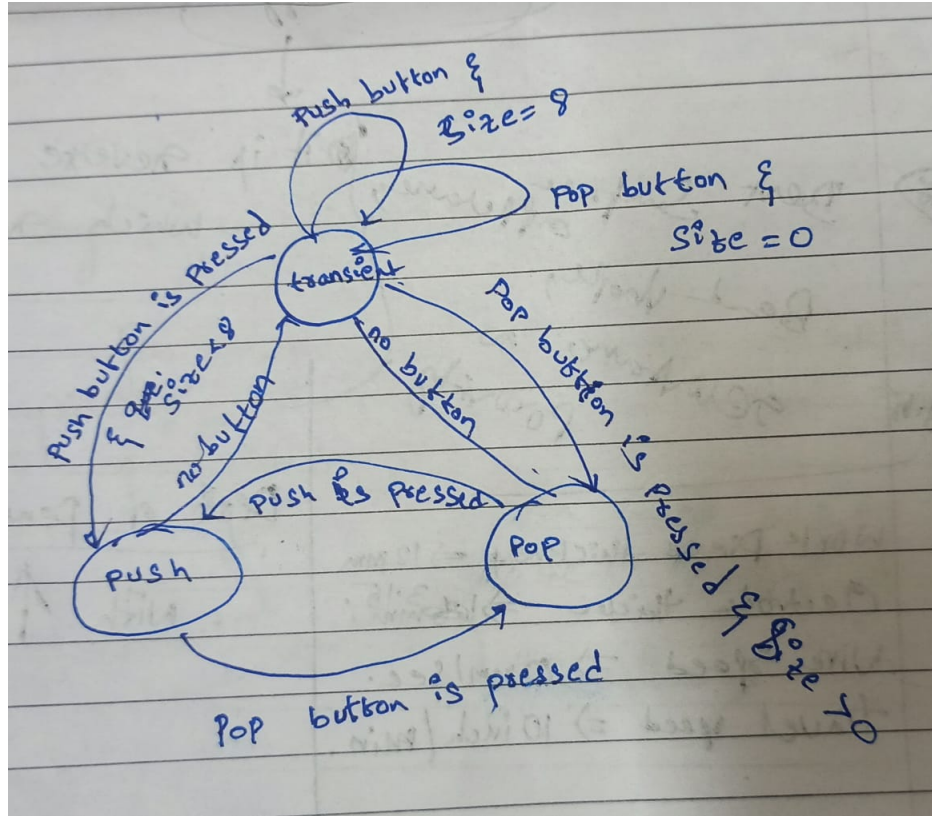 Push button &
size = 8
Pop button &
size = 0
transient
Push button is pressed
& size < 8
no button
no button
Pop button is pressed & size > 0
push is pressed
push
Pop
Pop button is pressed